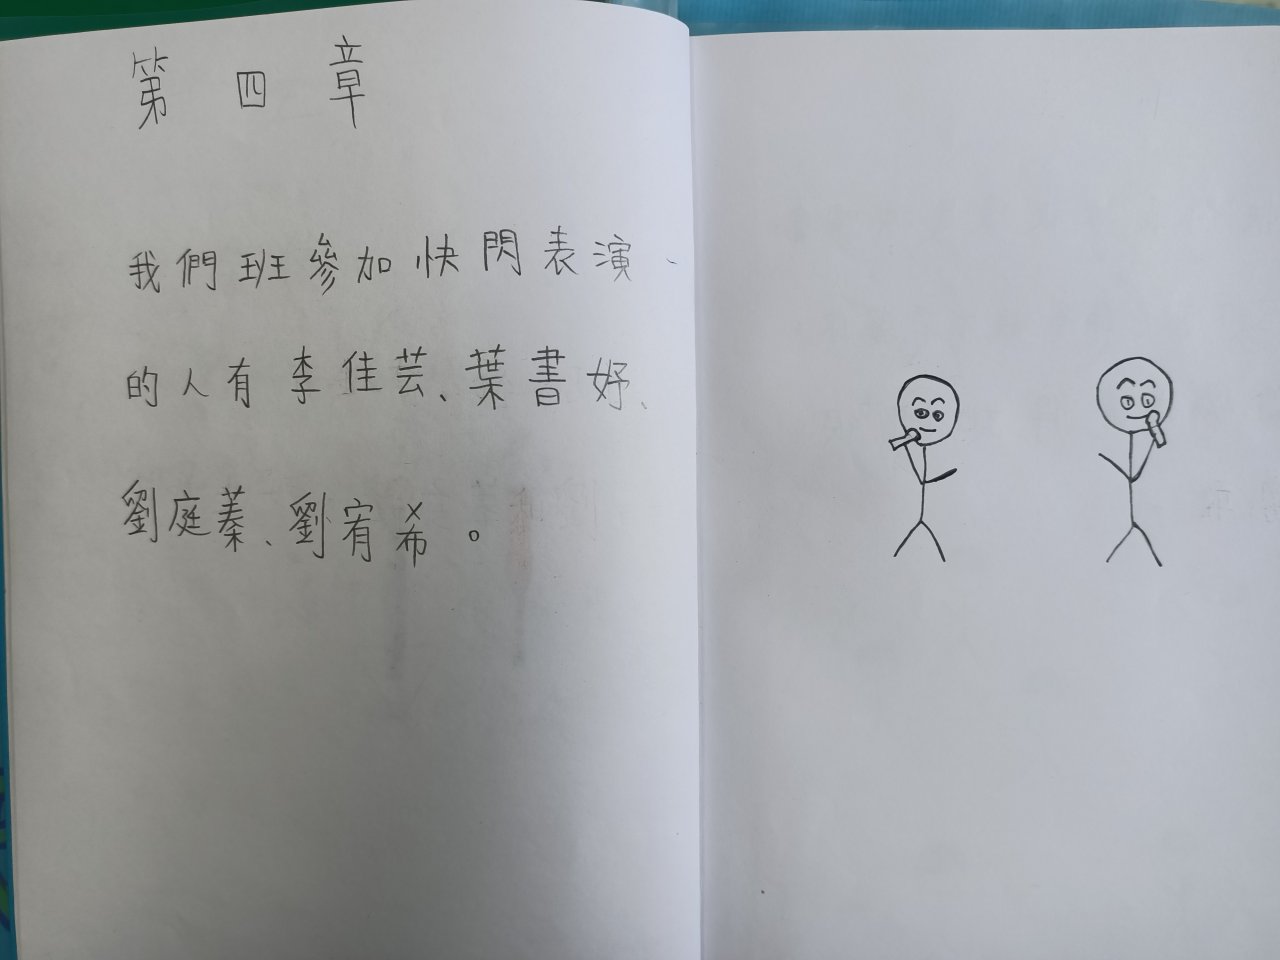 第四章
我們班參加快閃表演
的人有李佳芸、葉書妤、
劉庭蓁、劉宥希。